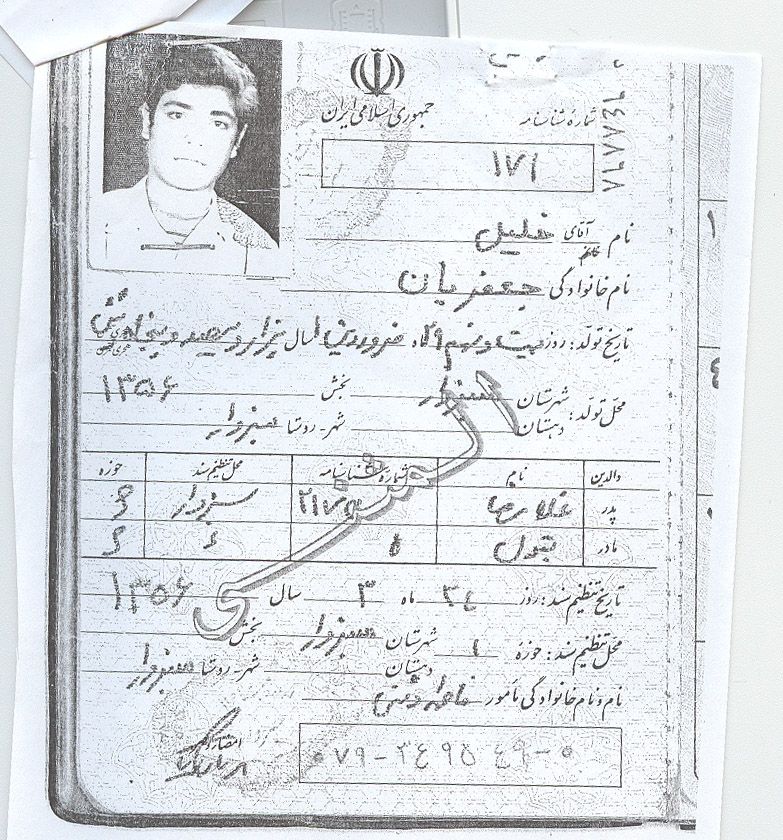 جمهوری اسلامی ایران
شمارهٔ شناسنامه
۱۷۱
نام آقای خلیل
خانم
نام خانوادگی جعفریان
تاریخ تولد: روز بیست و نهم ۲۹ ماه فروردین ۱ سال یکهزار و سیصد و پنجاه و شش
محل تولد: شهرستان سبزوار بخش ۱۳۵۶
دهستان شهر-روستا سبزوار
والدین نام شماره شناسنامه محل تنظیم سند حوزه
پدر غلامرضا سبزوار
مادر بتول
تاریخ تنظیم سند: روز ۲۴ ماه ۳ سال ۱۳۵۶
محل تنظیم سند: حوزه ۱ شهرستان سبزوار بخش
دهستان شهر-روستا سبزوار
نام و نام خانوادگی مأمور
المثنی
۰۷۹-۲۴۹۵۴۹-۰
۱
۴